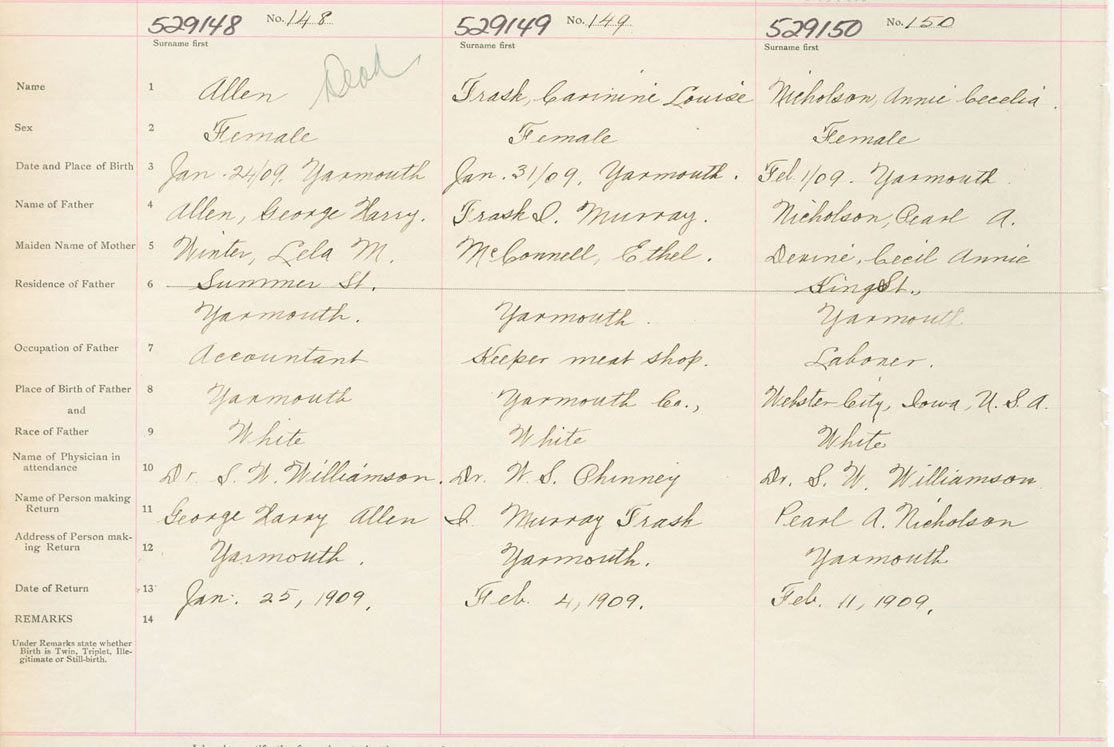 529148 No. 148 529149 No. 149 529150 No. 150
Surname first Surname first Surname first
Name 1 Allen Dead Trask, Carinine Louise Nicholson, Annie Cecelia.
Sex 2 Female Female Female
Date and Place of Birth 3 Jan. 24/09. Yarmouth Jan. 31/09. Yarmouth. Feb. 1/09. Yarmouth.
Name of Father 4 Allen, George Harry. Trask I. Murray. Nicholson, Pearl A.
Maiden Name of Mother 5 Winter, Lela M. McConnell, Ethel. Devine, Cecil Annie
Residence of Father 6 Summer St. King St.,
Yarmouth. Yarmouth. Yarmouth.
Occupation of Father 7 Accountant Keeper meat shop. Laborer.
Place of Birth of Father 8 Yarmouth Yarmouth Co., Webster City, Iowa, U.S.A.
and
Race of Father 9 White White White
Name of Physician in
attendance 10 Dr. S. W. Williamson. Dr. W. S. Phinney Dr. S. W. Williamson
Name of Person making
Return 11 George Harry Allen I. Murray Trask Pearl A. Nicholson
Address of Person mak-
ing Return 12 Yarmouth. Yarmouth. Yarmouth
Date of Return 13 Jan. 25, 1909. Feb. 4, 1909. Feb. 11, 1909.
REMARKS 14
Under Remarks state whether
Birth is Twin, Triplet, Ille-
gitimate or Still-birth.